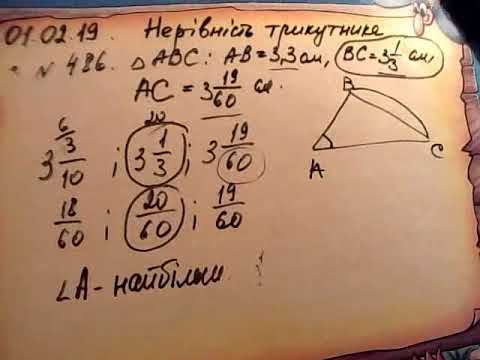 01.02.19. Нерівність трикутника
№ 486. △ABC: AB = 3,3 см, BC = 3 1/3 см,
AC = 3 19/60 см.
3 3/10 ; 3 1/3 ; 3 19/60
6 20
18/60 ; 20/60 ; 19/60
∠A - найбільш.
B
A
C